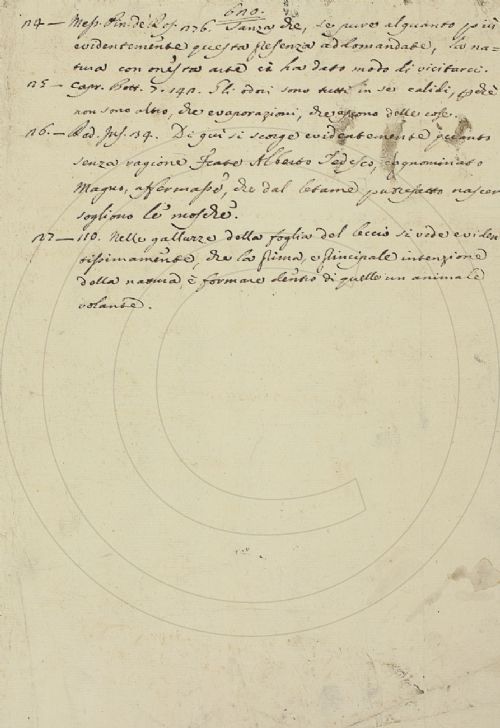 610.
24 — Mess. Pin. de Ros. 176. Tanza che, se pure alquanto più
evidentemente questa presenza addomandate, la na=
tura con onesta arte ci ha dato modo di vicitarci.
25 — Capr. Bott. 7. 141. Gli odori sono tutti in se calidi, perchè
non sono altro, che evaporazioni, che escono delle cose.
26. — Red. Ins. 34. Di qui si scorge evidentemente quanto
senza ragione Frate Alberto Tedesco, cognominato
Magno, affermasse, che dal letame putrefatto nascer
sogliono le mosche.
27 — 110. Nelle gallozze della foglia del leccio si vede eviden
tissimamente, che la prima, e principale intenzione
della natura è formare dentro di quelle un animale
volante.